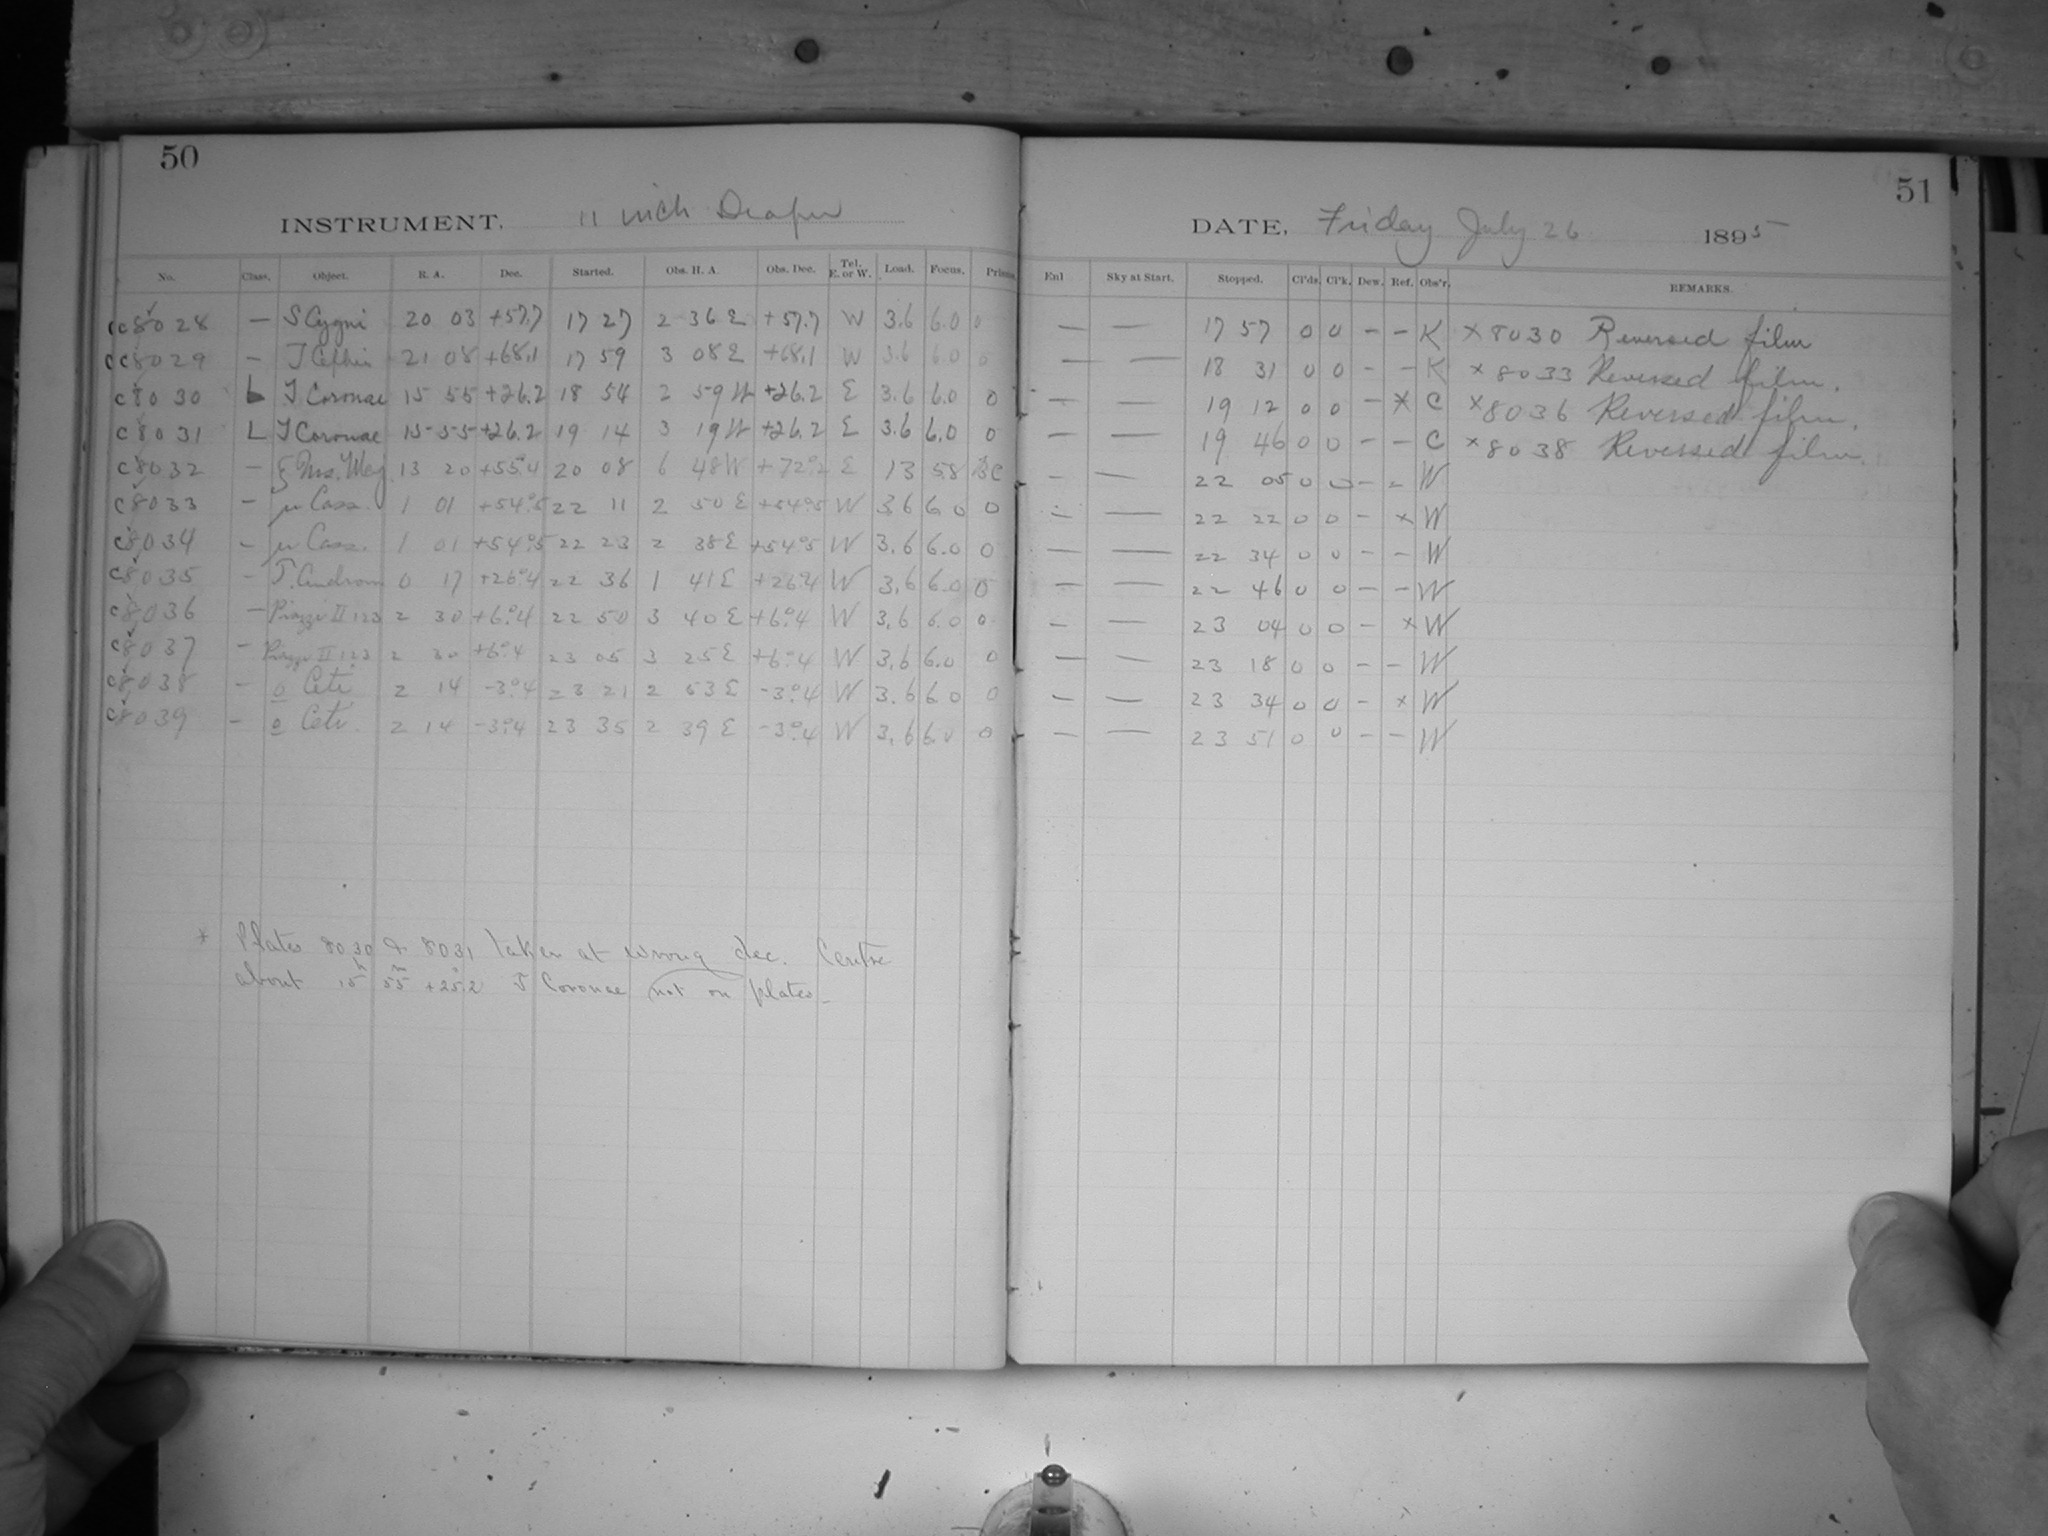 50
INSTRUMENT, 11 inch Draper
No. Class. Object. R. A. Dec. Started. Obs. H. A. Obs. Dec. Tel. E. or W. Load. Focus. Prisms.
c8028 — S Cygni 20 03 +57.7 17 27 2 36 E +57.7 W 3.6 6.0 0
c8029 — T Cephei 21 08 +68.1 17 59 3 08 E +68.1 W 3.6 6.0 0
c8030 L T Coronae 15 55 +26.2 18 54 2 59 W +26.2 E 3.6 6.0 0
c8031 L T Coronae 15 55 +26.2 19 14 3 19 W +26.2 E 3.6 6.0 0
c8032 — ξ Urs. Maj. 13 20 +55°.4 20 08 6 48 W +72°.2 E 13 5.8 BC
c8033 — μ Cass. 1 01 +54°.5 22 11 2 50 E +54°.5 W 3.6 6.0 0
c8034 — μ Cass. 1 01 +54°.5 22 23 2 38 E +54°.5 W 3.6 6.0 0
c8035 — T. Androm 0 17 +26°.4 22 36 1 41 E +26°.4 W 3.6 6.0 0
c8036 — Piazzi II 123 2 30 +6°.4 22 50 3 40 E +6°.4 W 3.6 6.0 0
c8037 — Piazzi II 123 2 30 +6°.4 23 05 3 25 E +6°.4 W 3.6 6.0 0
c8038 — o Ceti 2 14 -3°.4 23 21 2 53 E -3°.4 W 3.6 6.0 0
c8039 — o Ceti. 2 14 -3°.4 23 35 2 39 E -3°.4 W 3.6 6.0 0
* Plates 8030 & 8031 taken at wrong dec. Centre
about 15h 55m +25°.2 T Coronae not on plates –
51
DATE, Friday July 26 1895
Enl Sky at Start. Stopped. Cl'ds. Cl'k. Dew. Ref. Obs'r. REMARKS.
— — 17 57 0 0 – – K ×8030 Reversed film
— — 18 31 0 0 – – K ×8033 Reversed film.
— — 19 12 0 0 – × C ×8036 Reversed film.
— — 19 46 0 0 – – C ×8038 Reversed film.
– — 22 05 0 0 – – W
– — 22 22 0 0 – × W
— — 22 34 0 0 – – W
– — 22 46 0 0 – – W
– — 23 04 0 0 – × W
— — 23 18 0 0 – – W
— — 23 34 0 0 – × W
— — 23 51 0 0 – – W